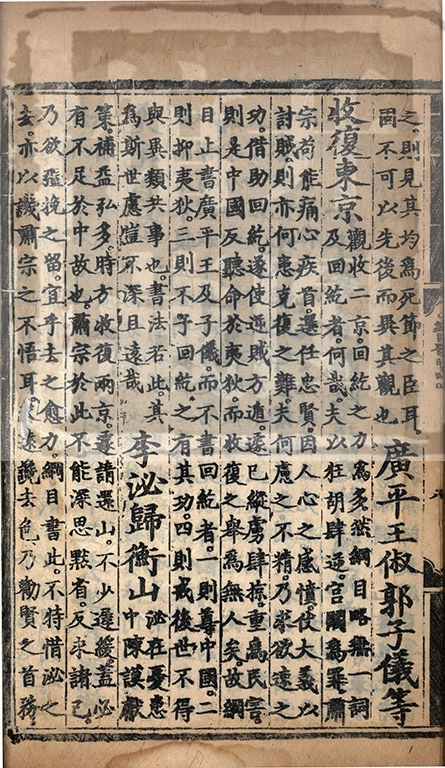 之則見其均爲死節之臣耳
固不可以先後而異其觀也
廣平王俶郭子儀等
收復東京
觀收二京回紇之力爲多然綱目略無一詞
及回紇者何哉夫以狂胡肆逆宮闕爲肅
宗苟能痛心疾首選任忠賢因人心之感憤大義以
討賊則亦何患克復之難夫何慮之不精乃求欲速之
功借助回紇遂使逆賊方遁遠已縱虜肆掠重爲民害
則是中國反聽命於夷狄而收復之舉爲無人矣故綱
目止書廣平王及子儀而不書回紇者一則尊中國二
則抑夷狄三則不予回紇之有其功四則戒後世不得
與異類共事也書法若此其
爲斯世慮豈不深且遠哉
李泌歸衡山
泌在憂患
中陳謨獻
策補益弘多時方收復兩京遽請還山不少遲緩蓋必
有不足於中故也肅宗於此不能深思默省反求諸己
乃欲強挽之留宜乎去之愈力綱目書此不特惜泌之
去亦以譏肅宗之不悟耳遠讒去色乃勸賢之首務